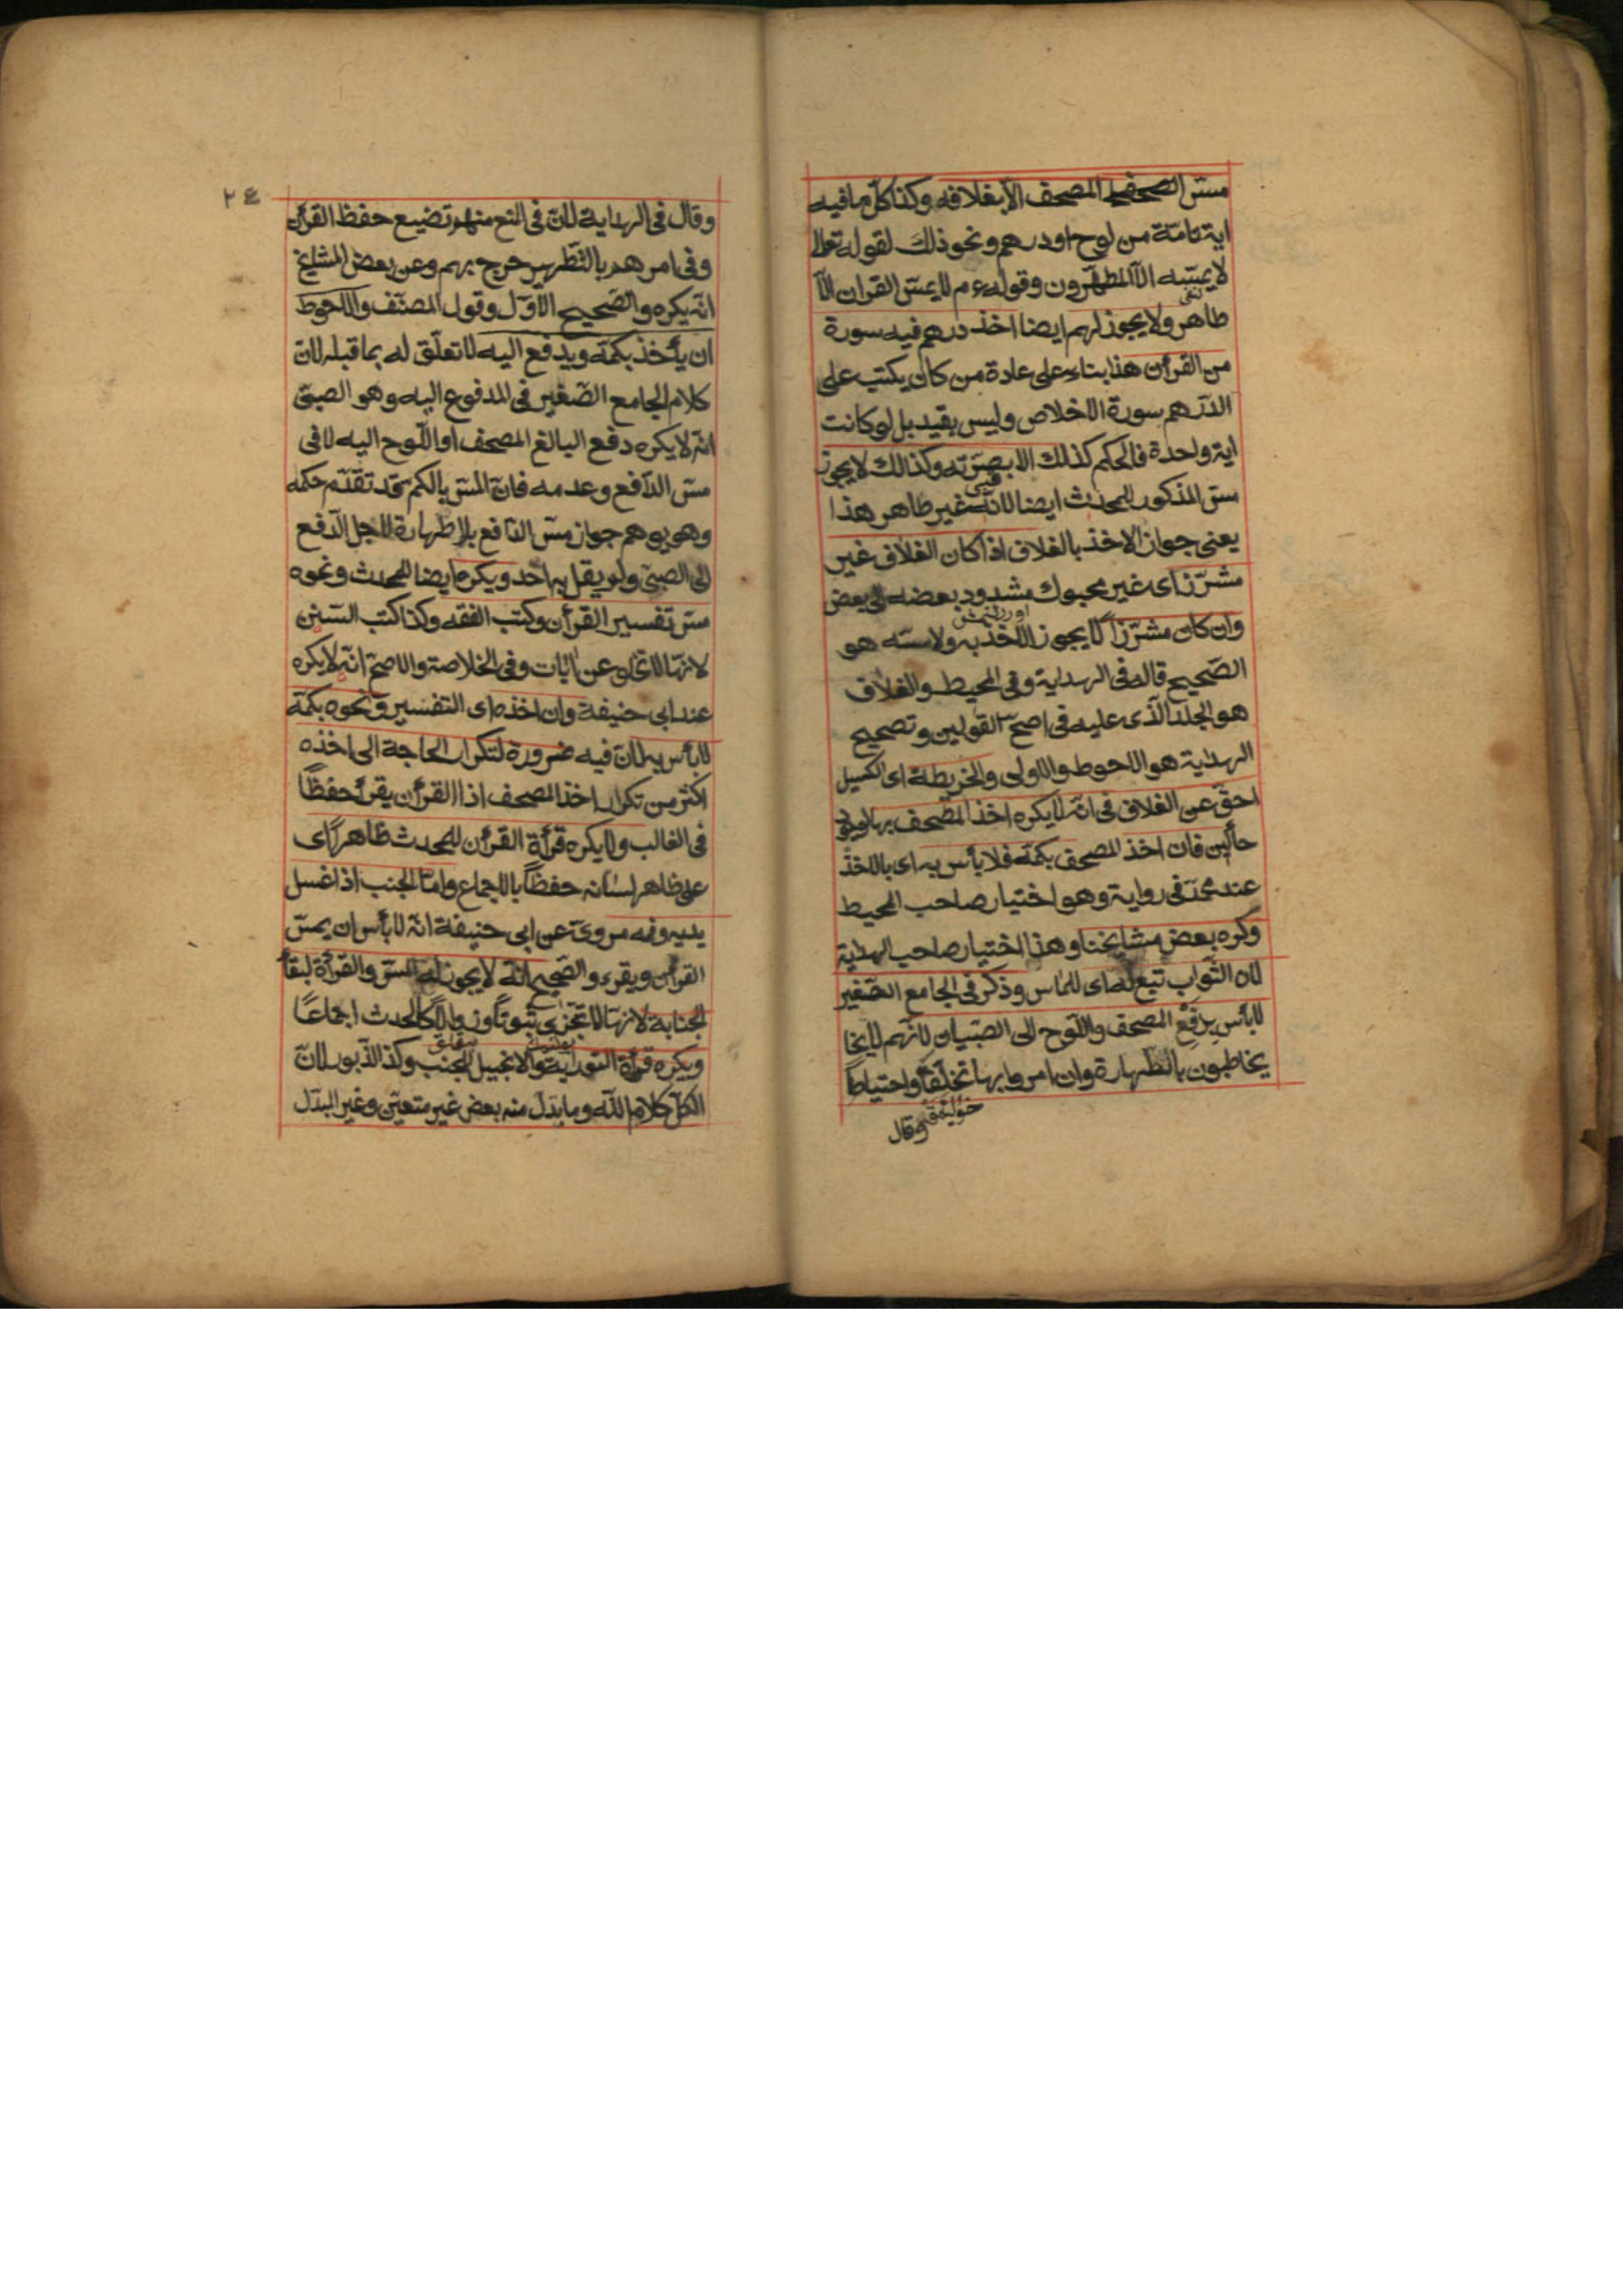 مسّ المصحف الا بغلافه وكذا كلّ ما فيه
اية تامّة من لوح او درهم ونحو ذلك لقوله تعالى
لا يمسّه الا المطهّرون وقوله ءم لا يمسّ القران الّا
طاهر ولا يجوز لهم ايضا اخذ درهم فيه سورة
من القرأن هذا بناء على عادة من كان يكتب على
الدّرهم سورة الاخلاص وليس بقيد بل لو كانت
اية واحدة فالحكم كذلك الا بصرّته وكذالك لا يجوز
مسّ المذكور للمحدث ايضا لانّه غير طاهر هذا
يعنى جواز الاخذ بالغلاف اذا كان الغلاف غير
مشرّز اى غير محبوك مشدود بعضه الى بعض
وان كان مشرّزاً لا يجوز الاخذ به ولا مسّه هو
الصّحيح قاله فى الهداية وفى المحيط والغلاف
هو الجلد الّذى عليه فى اصحّ القولين وتصحيح
الهداية هو الاحوط والاولى والخريطة اى الكيس
احقّ عن الغلاف فى انّه لا يكره اخذ المصحف بها
حائلين فان اخذ المصحف بكمّه فلا بأس به اى بالاخذ
عند محمّد فى رواية وهو اختيار صاحب المحيط
وكره بعض مشايخنا وهذا اختيار صاحب الهداية
لان الثّواب تبع له اى للماس وذكر فى الجامع الصّغير
لا بأس بدفع المصحف واللّوح الى الصّبيان لانّهم لا يخا
يخاطبون بالطّهارة وان امروا بها تخلّقاً واحتياطاً
وقال
٢٤
وقال فى الهداية لانّ فى المنع منهم تضيع حفظ القرأن
وفى امرهم بالتّطهير حرج بهم وعن بعض المشايخ
انّه يكره والصّحيح الاوّل وقول المصنّف والاحوط
ان يأخذ بكمّه ويدفع اليه لا تعلّق له بما قبله لانّ
كلام الجامع الصّغير فى المدفوع اليه وهو الصبىّ
انّه لا يكره دفع البالغ المصحف او اللّوح اليه لا فى
مسّ الدّافع وعدمه فانّ المسّ بالكم قد تقدّم حكمه
وهو يوهم جواز مسّ الدّافع بلا طهارة لاجل الدّفع
الى الصبىّ ولم يقل به احد ويكره ايضا للمحدث ونحوه
مسّ تفسير القرأن وكتب الفقه وكذا كتب السّنن
لانّها لا تخلو عن ايات وفى الخلاصة والاصحّ انّه لا يكره
عند ابى حنيفة وان اخذه اى التفسير ونحوه بكمّه
لا بأس به لانّ فيه ضرورة لتكرار الحاجة الى اخذه
اكثر من تكرار اخذ المصحف اذ القرأن يقرأ حفظًا
فى الغالب ولا يكره قرأة القرأن للمحدث ظاهراً اى
على ظاهر لسانه حفظاً بالاجماع وامّا الجنب اذا غسل
يديه وفمه مروىّ عن ابى حنيفة انّه لا بأس ان يمسّ
القرأن ويقرء والصّحيح انّه لا يجوز له المسّ والقرأة لبقأ
الجنابة لانّها لا تتجزى ثبوتاً وزوالاً كالحدث اجماعًا
ويكره قرأة التورية والانجيل للجنب وكذ الذّبور لانّ
الكلّ كلام اللّه وما بدّل منه بعض غير متعيّن وغير البدّل